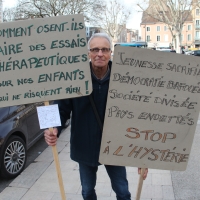 COMMENT OSENT-ILS
FAIRE DES ESSAIS
THÉRAPEUTIQUES
SUR NOS ENFANTS
QUI NE RISQUENT RIEN !
JEUNESSE SACRIFIÉE
DÉMOCRATIE BAFOUÉE
SOCIÉTÉ DIVISÉE
PAYS ENDETTÉS
STOP
À L'HYSTÉRIE